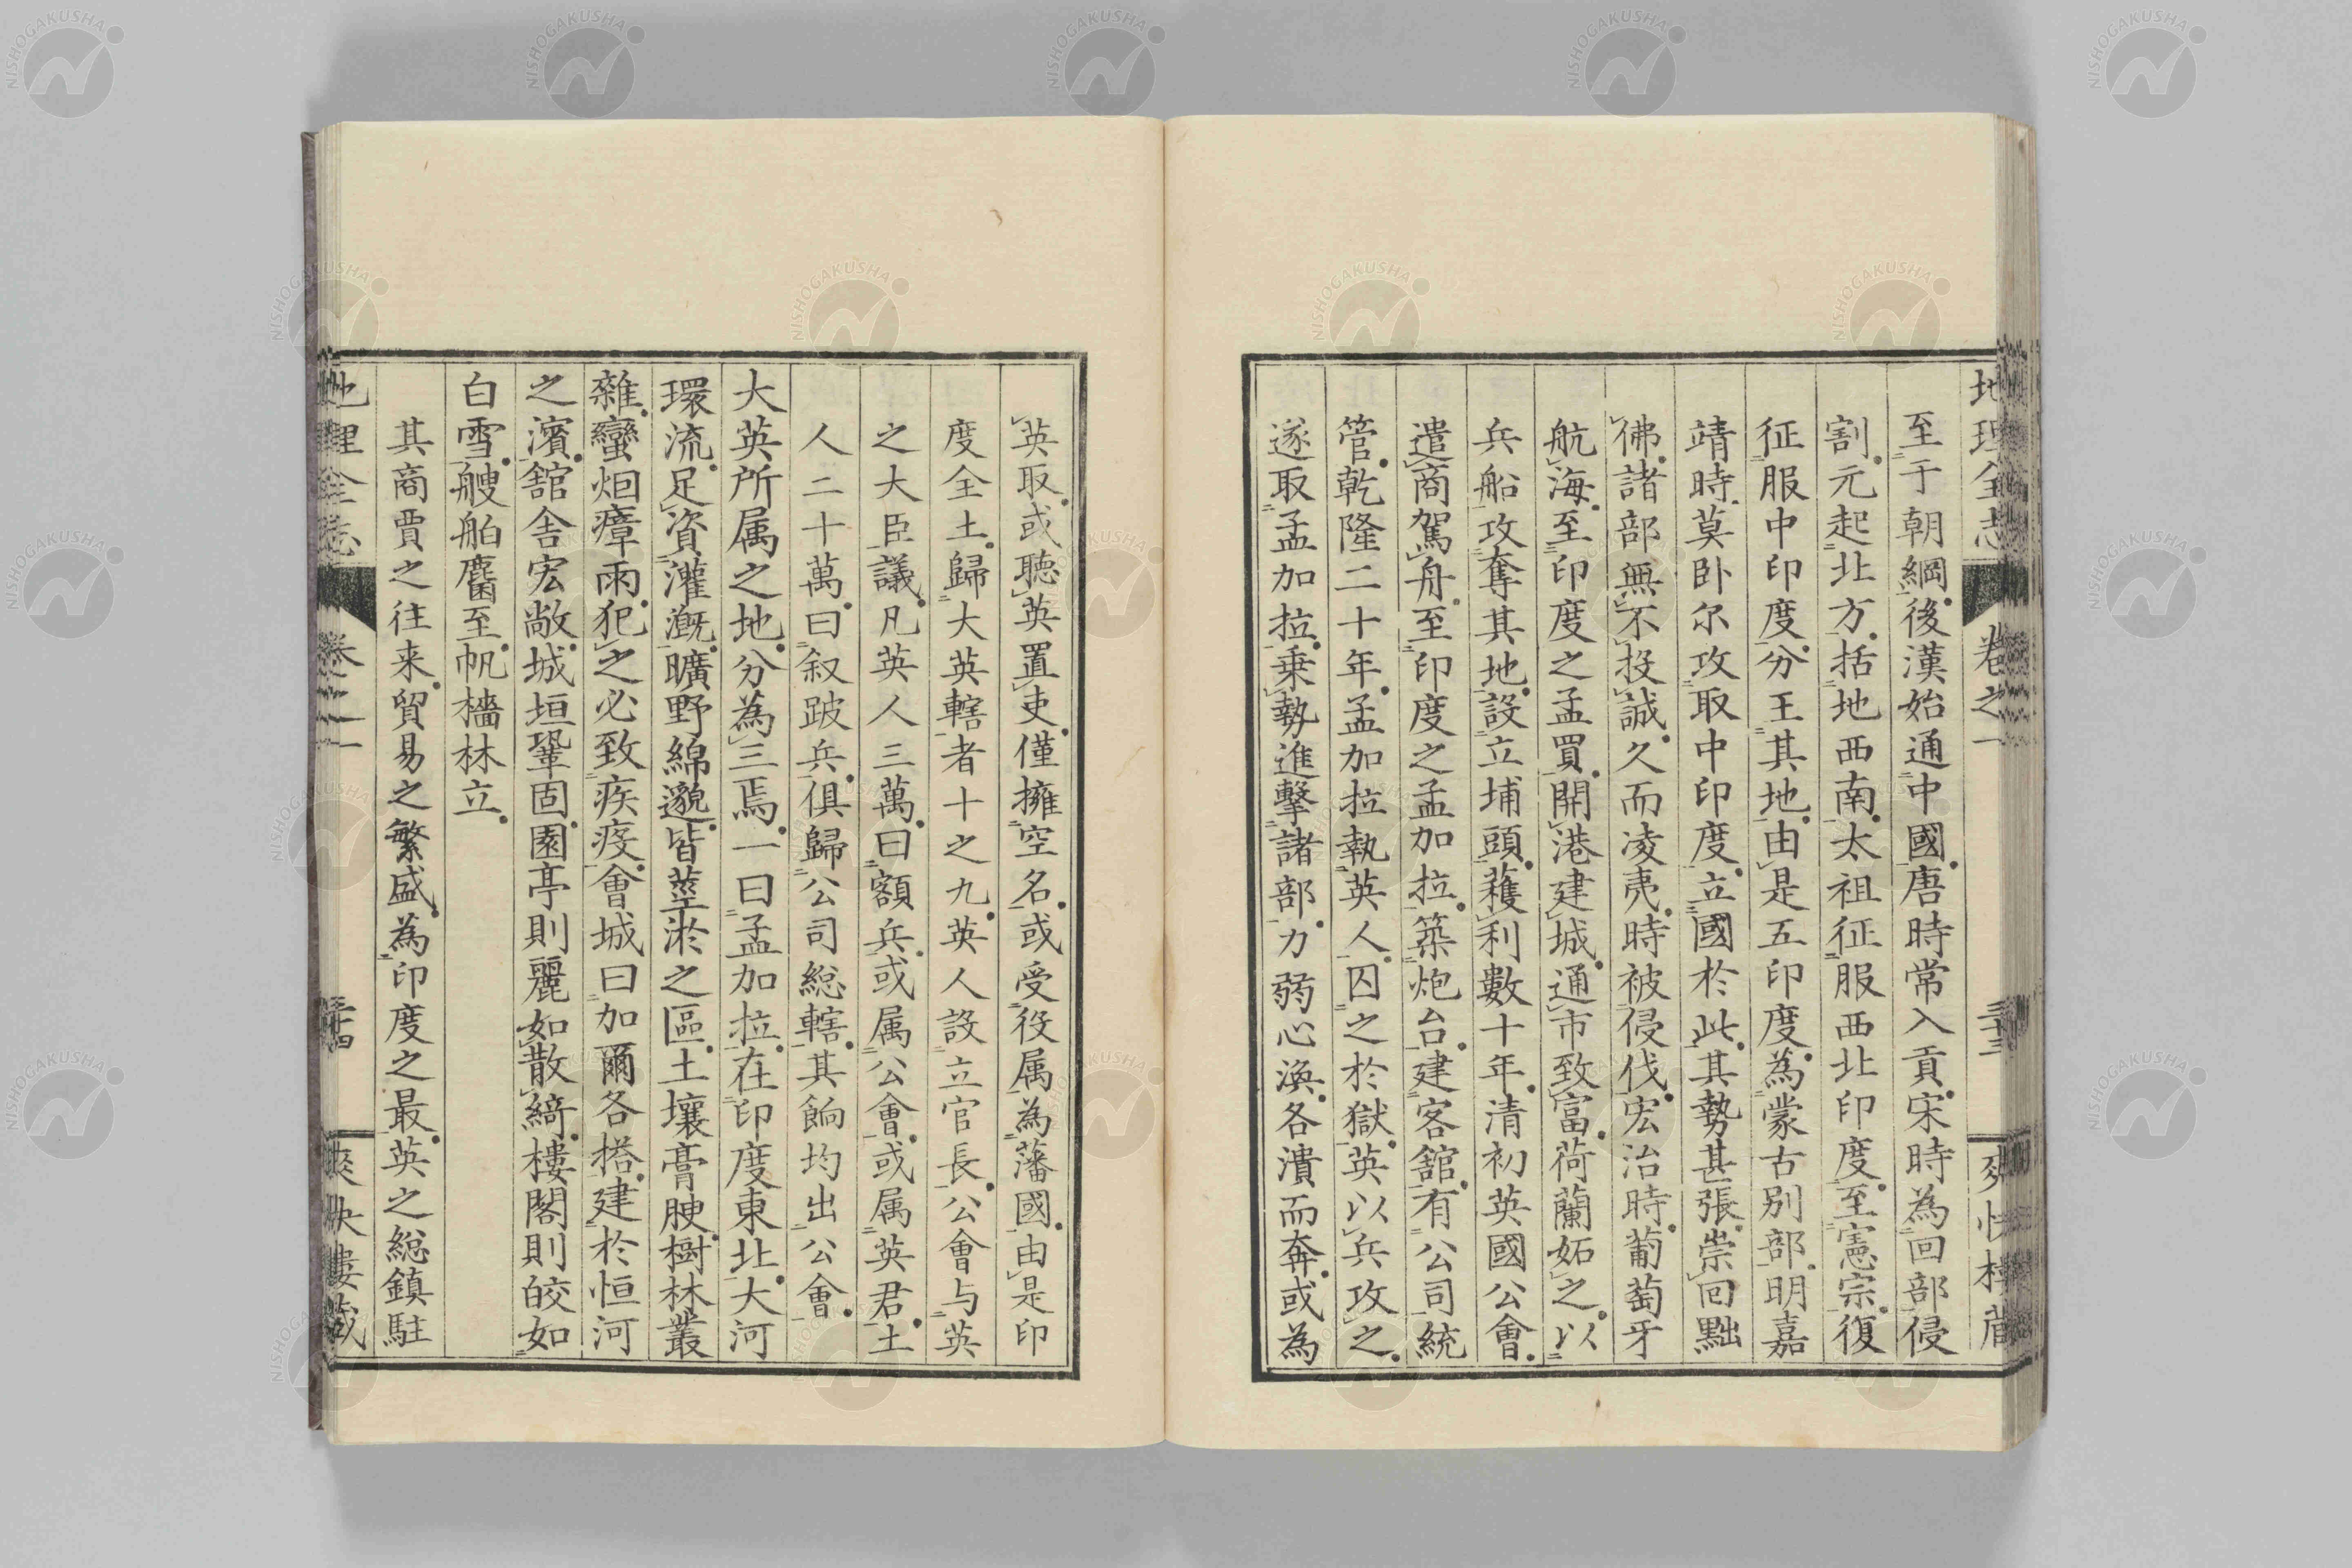 地理全志 卷之一 三十三 爽快樓藏
至于朝綱後漢始通中國唐時常入貢宋時為回部侵
割元起北方括地西南太祖征服西北印度至憲宗復
征服中印度分王其地由是五印度為蒙古別部明嘉
靖時莫臥尔攻取中印度立國於此其勢甚張崇回黜
佛諸部無不投誠久而凌夷時被侵伐宏治時葡萄牙
航海至印度之孟買開港建城通市致富荷蘭妬之以
兵船攻奪其地設立埔頭獲利數十年清初英國公會
遣商駕舟至印度之孟加拉築炮台建客舘有公司統
管乾隆二十年孟加拉執英人囚之於獄英以兵攻之
遂取孟加拉乘勢進擊諸部力弱心渙各潰而奔或為
英取或聽英置吏僅擁空名或受役属為藩國由是印
度全土歸大英轄者十之九英人設立官長公會与英
之大臣議凡英人三萬曰額兵或属公會或属英君土
人二十萬曰叙跛兵俱歸公司総轄其餉均出公會
大英所属之地分為三焉一曰孟加拉在印度東北大河
環流足資灌漑曠野綿邈皆莖淤之區土壤膏腴樹林叢
雜蠻烟瘴雨犯之必致疾疫會城曰加爾各搭建於恒河
之濱舘舍宏敞城垣鞏固園亭則麗如散綺樓閣則皎如
白雪艘舶麕至帆檣林立
其商賈之往来貿易之繁盛為印度之最英之総鎮駐
地理全志 卷之一 三十四 爽快樓藏